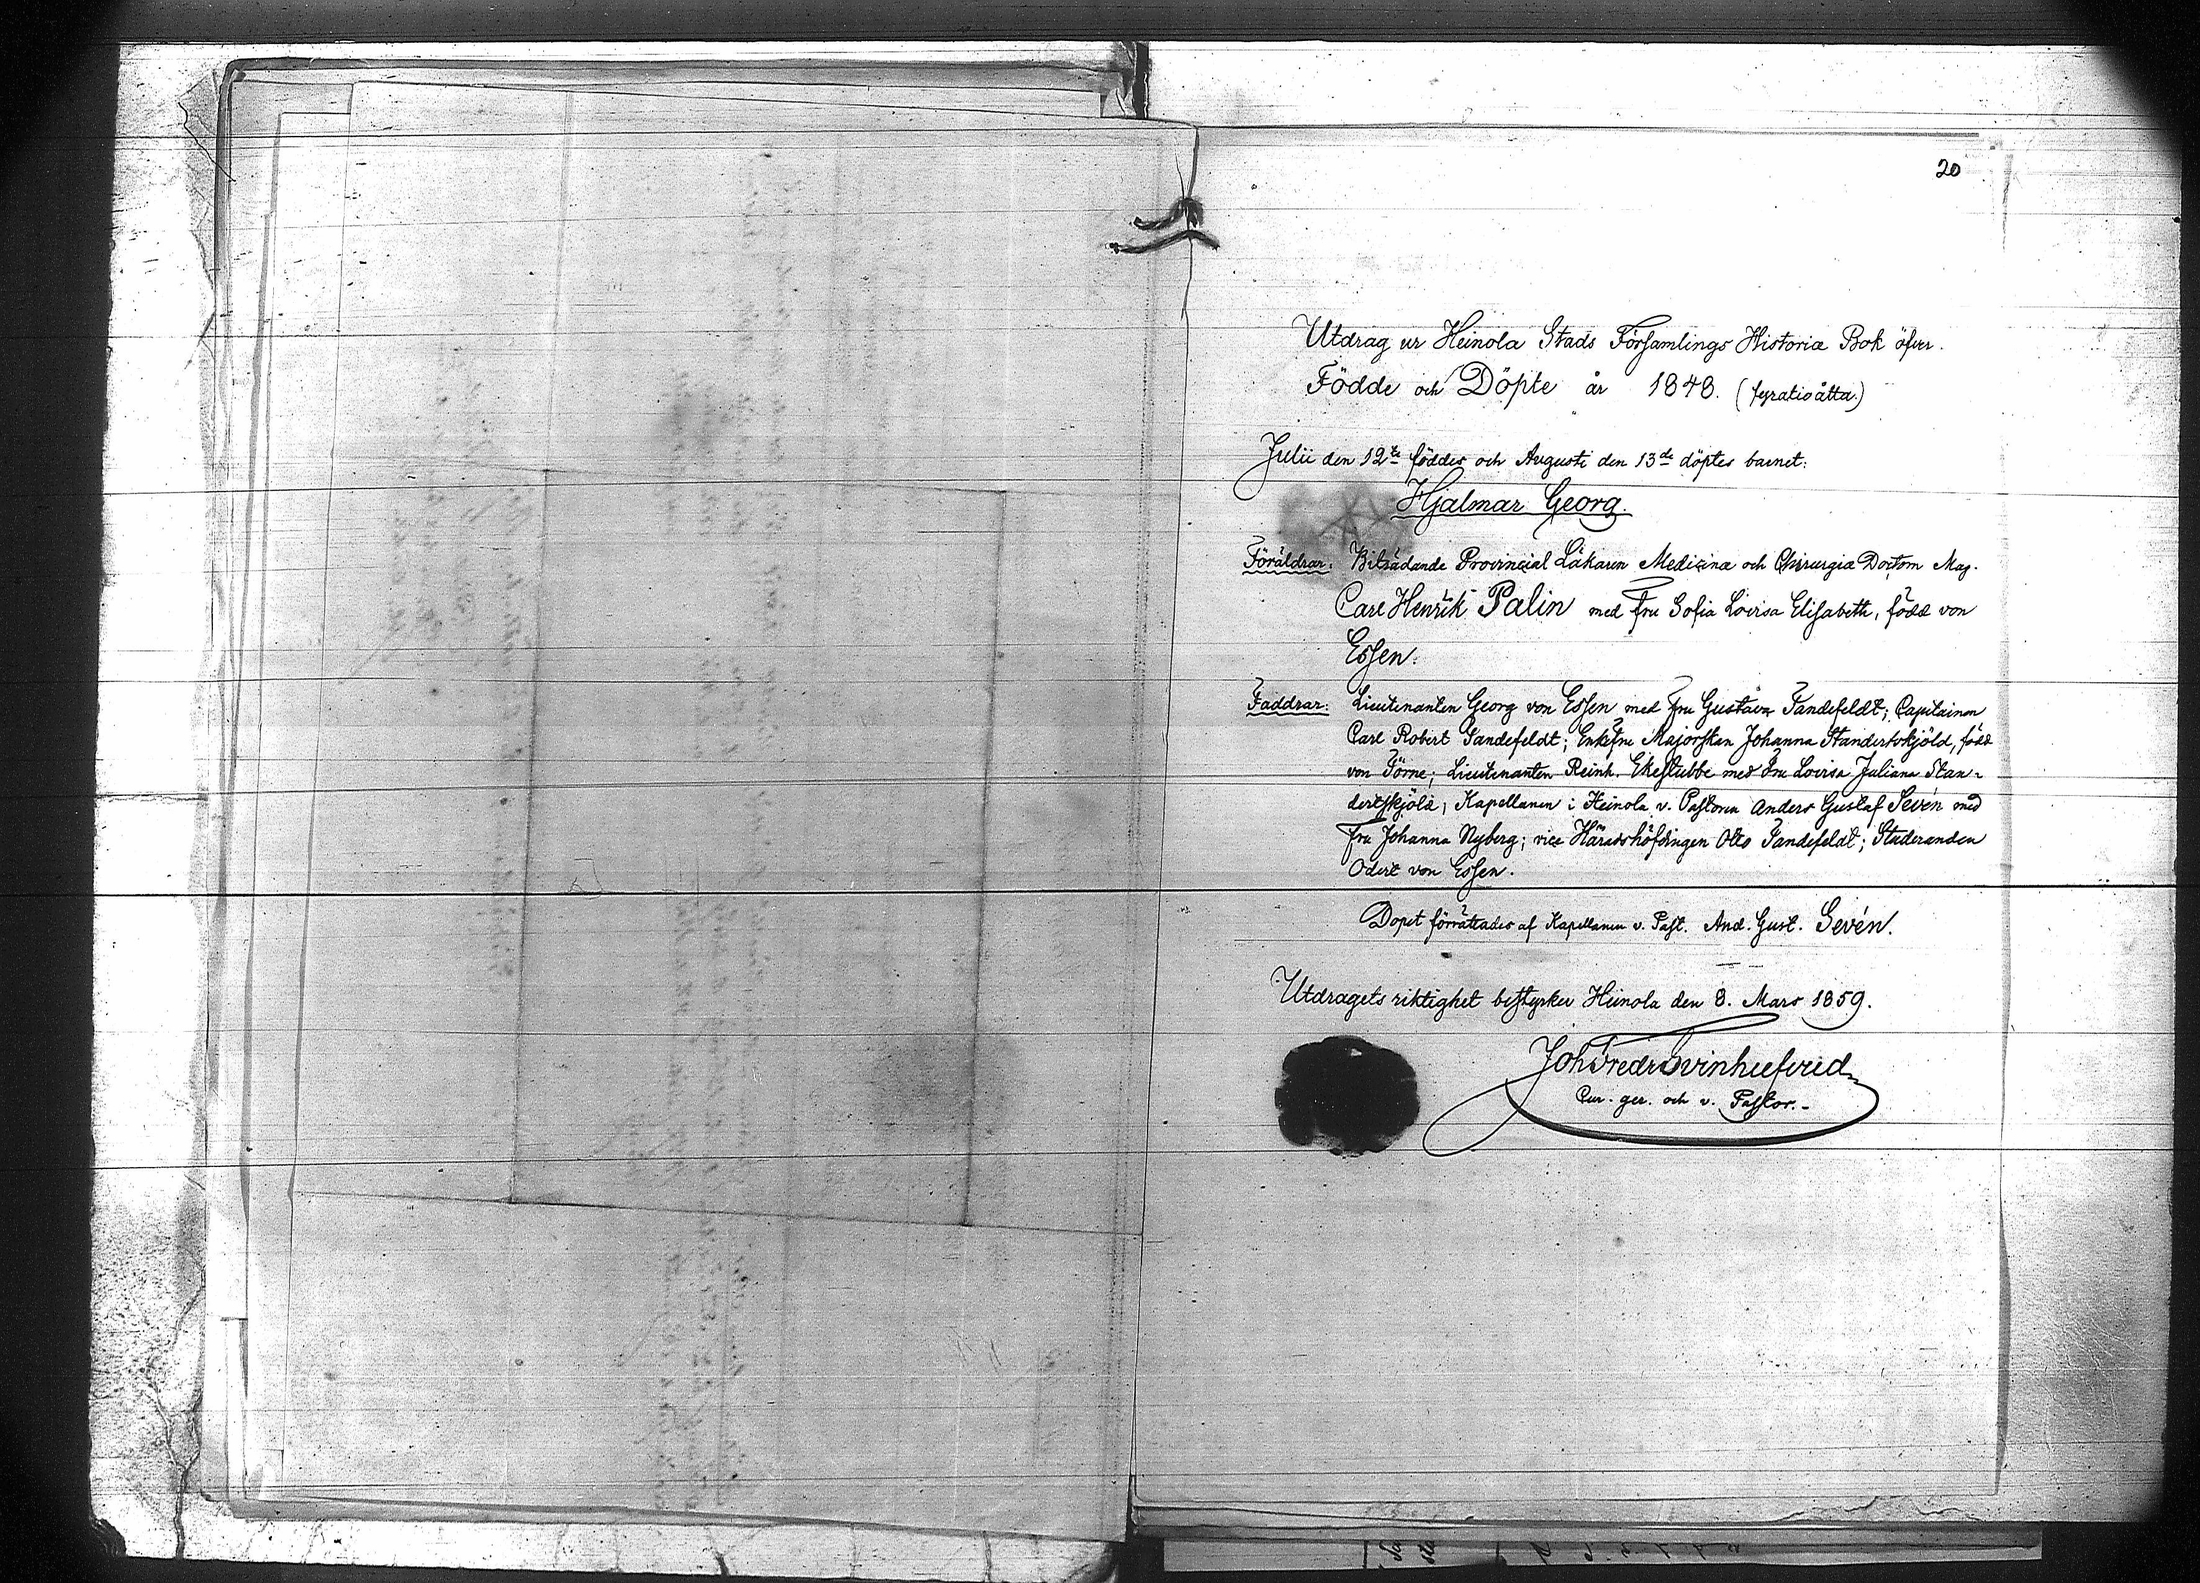 20
Utdrag ur Heinola Stads Församlings Historiæ Bok öfver
Födde och Döpte år 1848. (fyratioåtta.)
Julii den 12te föddes och Augusti den 13de döptes barnet:
Hjalmar Georg.
Föräldrar: Biträdande Provincial Läkaren Medicinæ och Chirurgiæ Doctorn Mag.
Carl Henrik Palin med Fru Sofia Lovisa Elisabeth, född von
Essen.
Faddrar: Lieutenanten Georg von Essen med Fru Gustava Tandefeldt; Capitainen
Carl Robert Tandefeldt; Enkefru Majorskan Johanna Standertskjöld, född
von Törne; Lieutenanten Reinh. Ekestubbe med Fru Lovisa Juliana Stan-
dertskjöld; Kapellanen i Heinola v. Pastorn Anders Gustaf Sevén med
Fru Johanna Nyberg; vice Häradshöfdingen Otto Tandefeldt; Studeranden
Odert von Essen.
Dopet förrättades af Kapellanen v. Past. And. Gust. Sevén.
Utdragets riktighet bestyrker Heinola den 8. Mars 1859.
Joh Fredr Svinhufvud
Cur. ger. och v. Pastor.